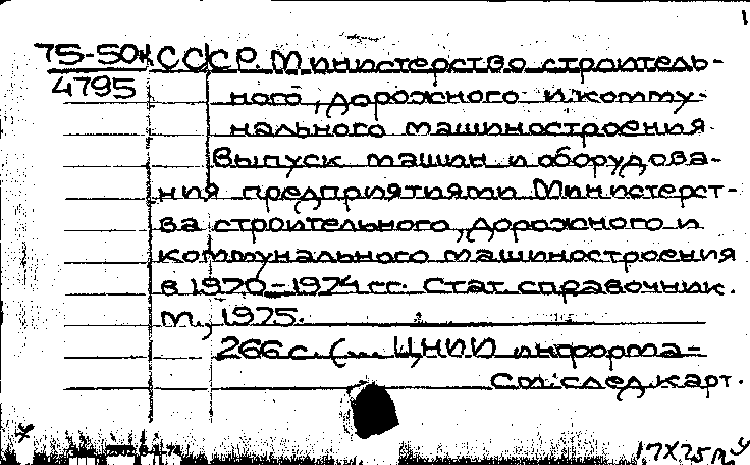 1
75-50к СССР. Министерство строитель-
4795 ного, дорожного и комму-
нального машиностроения
Выпуск машин и оборудова-
ния предприятиями Министерст-
ва строительного, дорожного и
коммунального машиностроения
в 1970-1974 гг. Стат. справочник.
М., 1975.
266 с. (... ЦНИИ информа-
См. след. карт.